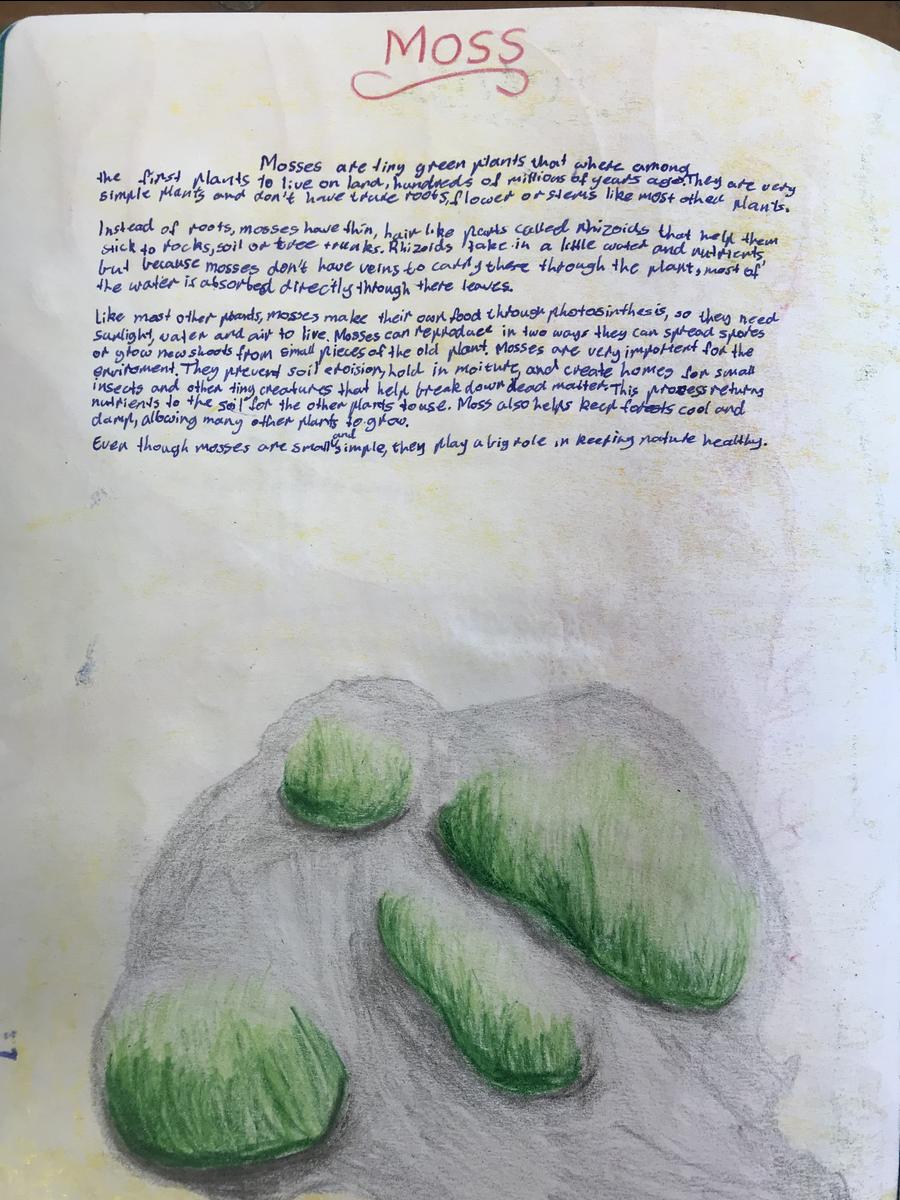 MOSS
Mosses are tiny green plants that where among
the first plants to live on land, hundreds of millions of years ago. They are very
simple plants and don't have true roots, flower or stems like most other plants.
Instead of roots, mosses have thin, hair like parts called Rhizoids that help them
stick to rocks, soil or tree trunks. Rhizoids take in a little water and nutrients
but because mosses don't have veins to carry there through the plant, most of
the water is absorbed directly through there leaves.
Like most other plants, mosses make their own food through photosinthesis, so they need
sunlight, water and air to live. Mosses can reproduce in two ways they can spread spores
or grow new shoots from small pieces of the old plant. Mosses are very importent for the
enviroment. They prevent soil eroision, hold in moiture, and create homes for small
insects and other tiny creatures that help break down dead matter. This process returns
nutrients to the soil for the other plants to use. Moss also helps keep forests cool and
damp, allowing many other plants to grow.
Even though mosses are small and simple, they play a big role in keeping nature healthy.